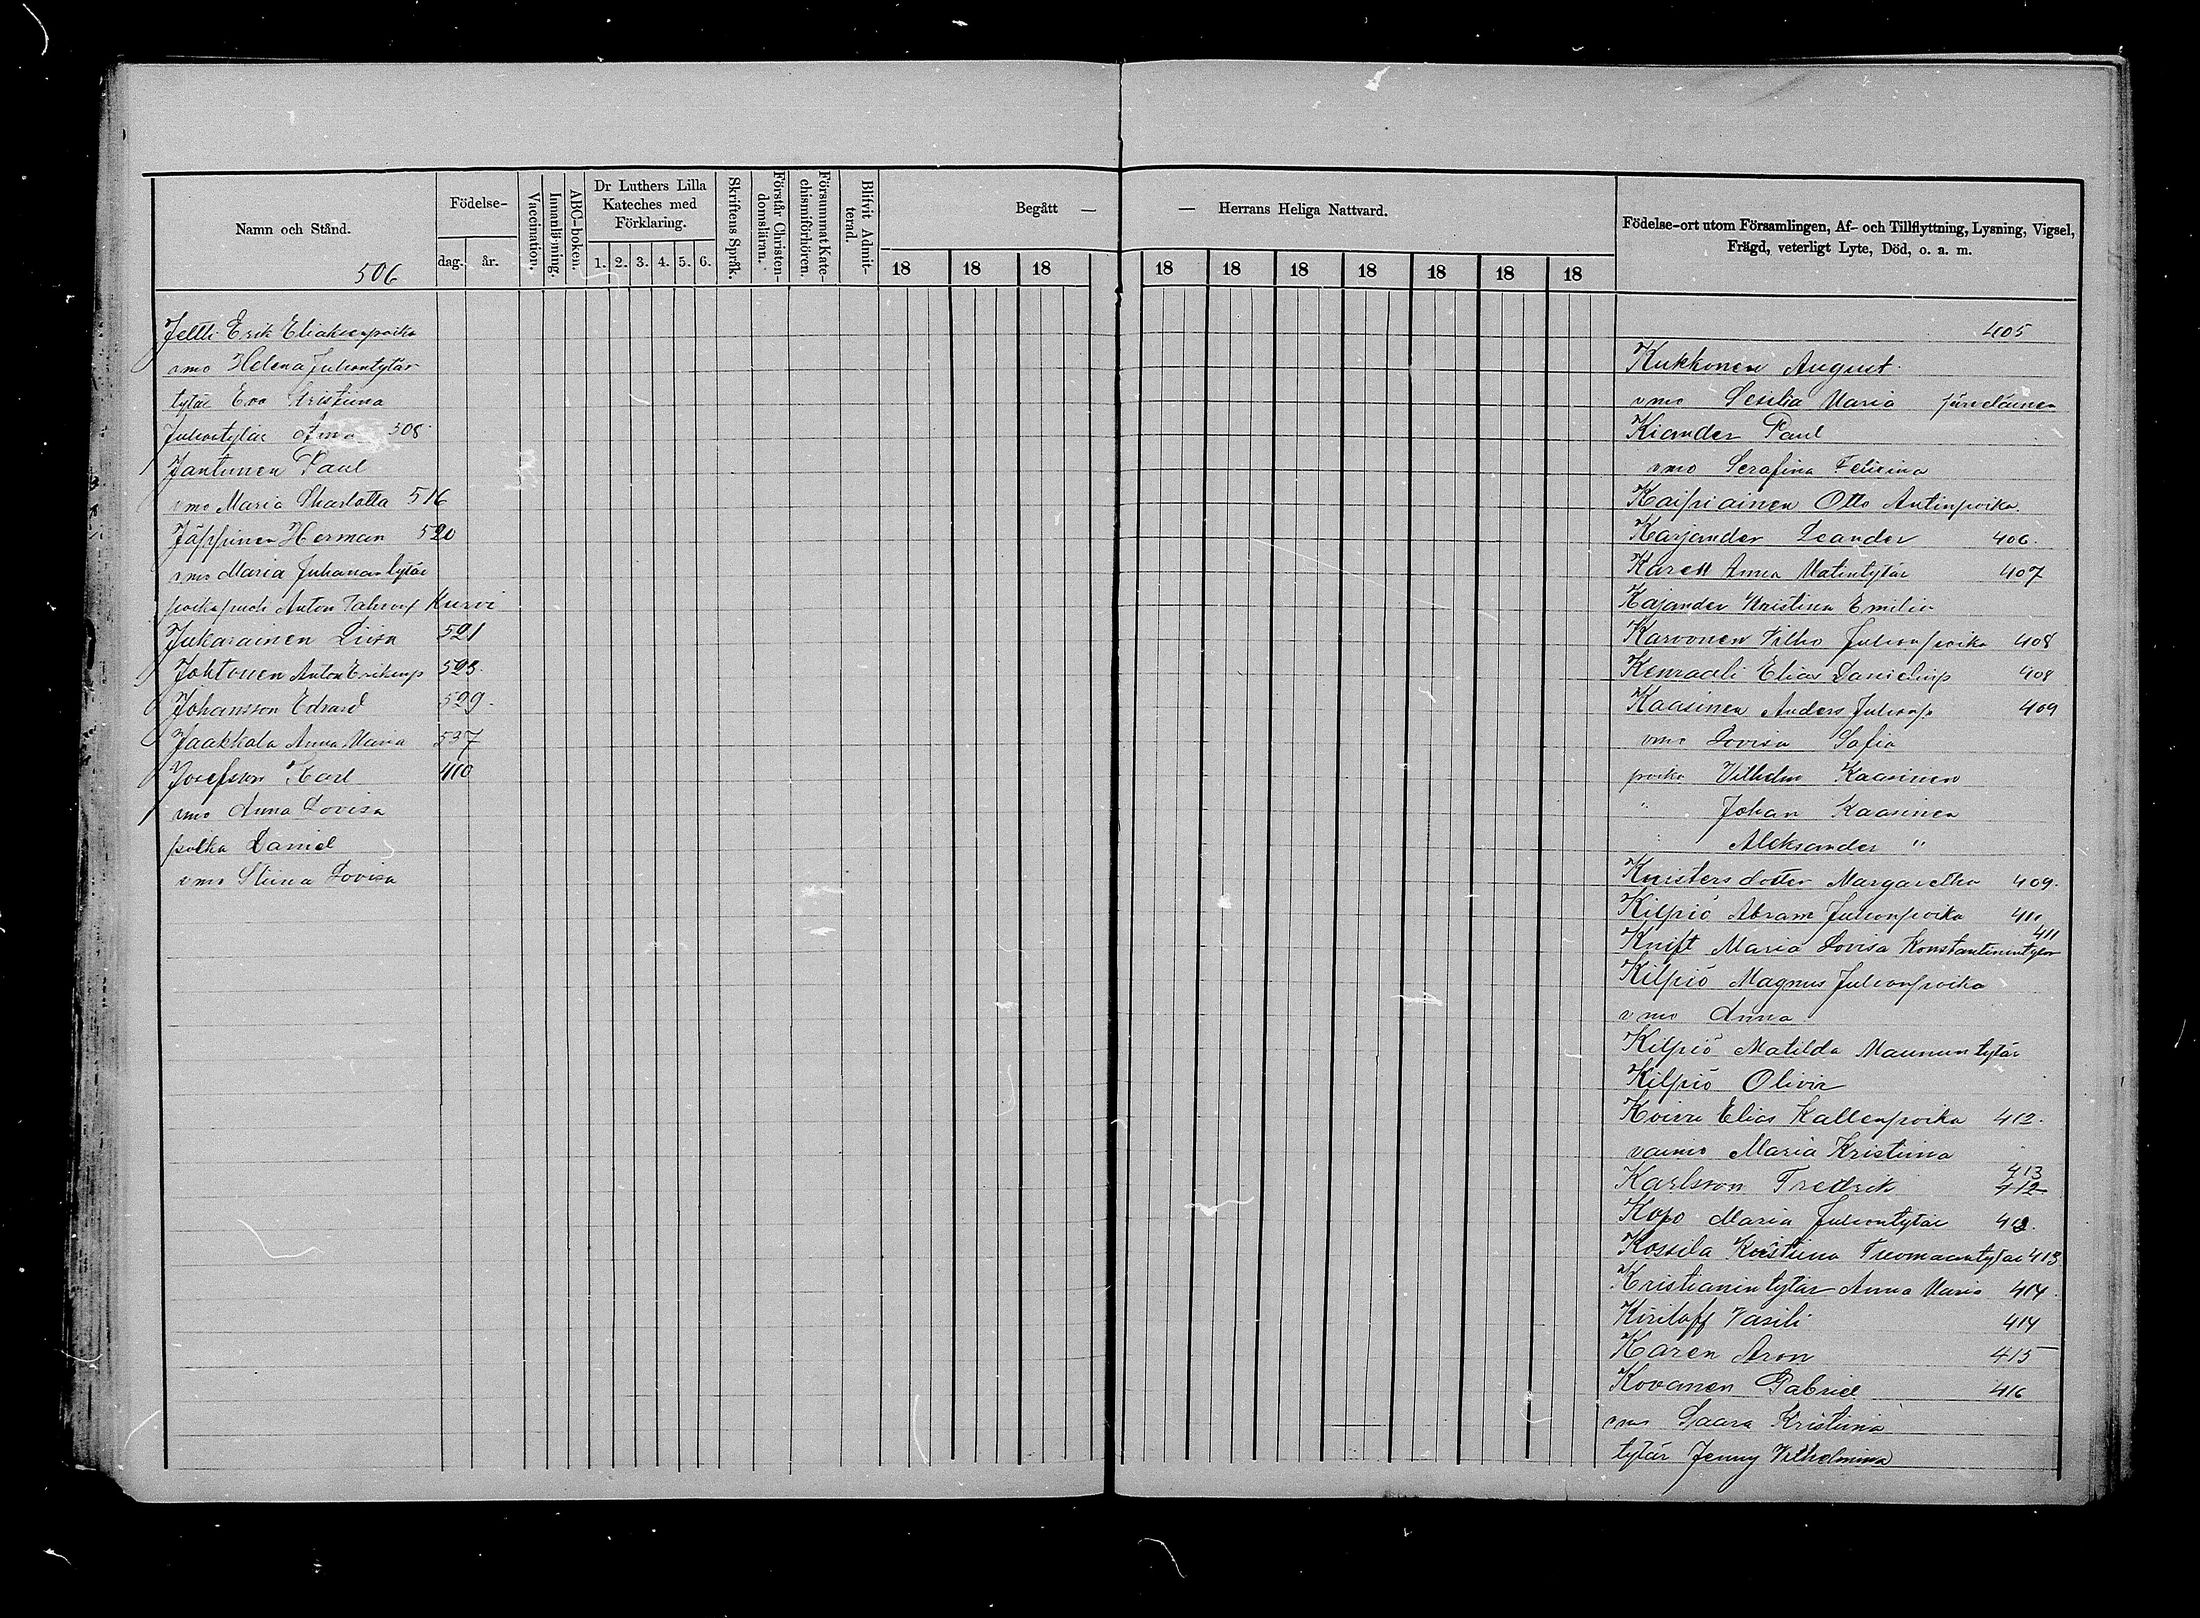 Namn och Stånd.
506
Födelse-
dag. år.
Vaccination.
Innanläsning.
ABC-boken.
Dr Luthers Lilla
Kateches med
Förklaring.
1. 2. 3. 4. 5. 6.
Skriftens Språk.
Förstår Christen-
domsläran.
Försummat Kate-
chismiförhören.
Blifvit Admit-
terad.
Begått —
— Herrans Heliga Nattvard.
18 18 18 18 18 18 18 18 18 18
Födelse-ort utom Församlingen, Af- och Tillflyttning, Lysning, Vigsel,
Frägd, veterligt Lyte, Död, o. a. m.
Jeltti Erik Eliaksenpoika
vmo Helena Juhontytär
tytär Eva Kristiina
Juhontytär Anna 508
Jantunen Paul
vmo Maria Charlotta 516
Jäppinen Herman 520
vmo Maria Juhanantytär
poikapuoli Anton Kurvi
Jukarainen Liisa 521
Johtonen Anton Erikinp 523.
Johansson Edvard 529.
Jaakkola Anna Maria 537
Josefsson Karl 410
vmo Anna Lovisa
poika Daniel
vmo Stiina Lovisa
405
Kukkonen August
vmo Sesilia Maria
Kiander Paul
vmo Serafina
Kaipiainen Otto Antinpoika
Karjander Leander 406.
Karell Anna Matintytär 407
Kajander Kristina Emilia
Karvonen Vilho Juhonpoika 408
Elias Danielinp 408
Kaasinen Anders Juhonp 409
vmo Lovisa Sofia
poika Vilhelm Kaasinen
" Johan Kaasinen
" Aleksander "
Margaretha 409.
Kilpiö Abram Juhonpoika 411
411
Knift Maria Lovisa Konstantinintytär
Kilpiö Magnus Juhonpoika
vmo Anna
Kilpiö Matilda Maunun tytär
Kilpiö Olivia
Elias Kallenpoika 412.
vaimo Maria Kristiina
413
Karlsson Fredrik 412
Kopo Maria Juhontytär 413.
Kossila Kristiina 413
Kristianintytär Anna Maria 414.
Kiriloff Vasili 414
Karen Aron 415
Kovanen Gabriel 416
vmo Saara Kristiina
tytär Jenny Vilhelmina